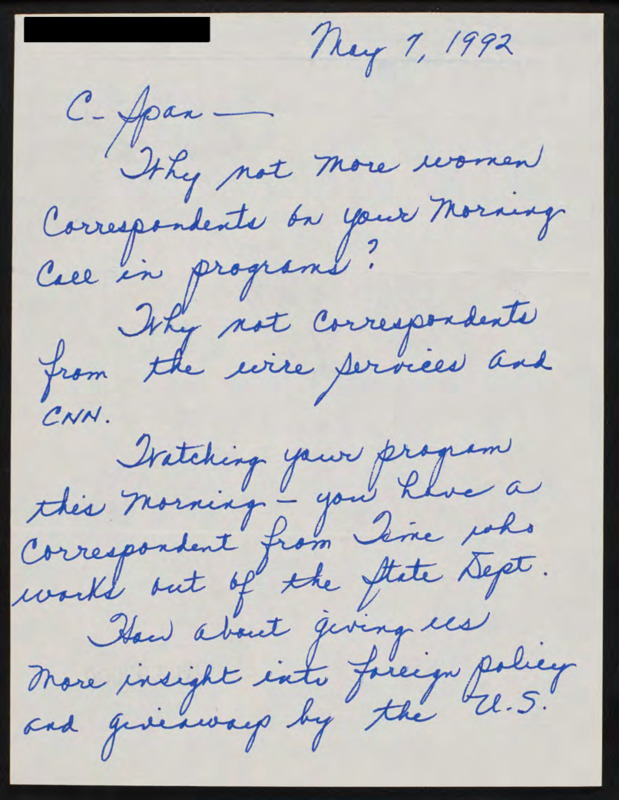 May 7, 1992
C-Span —
Why not more women
Correspondents on your Morning
Call in programs?
Why not Correspondents
from the wire services and
CNN.
Watching your program
this Morning - you have a
Correspondent from Time who
works out of the State Dept.
How about giving us
More insight into foreign policy
and giveaways by the U.S.